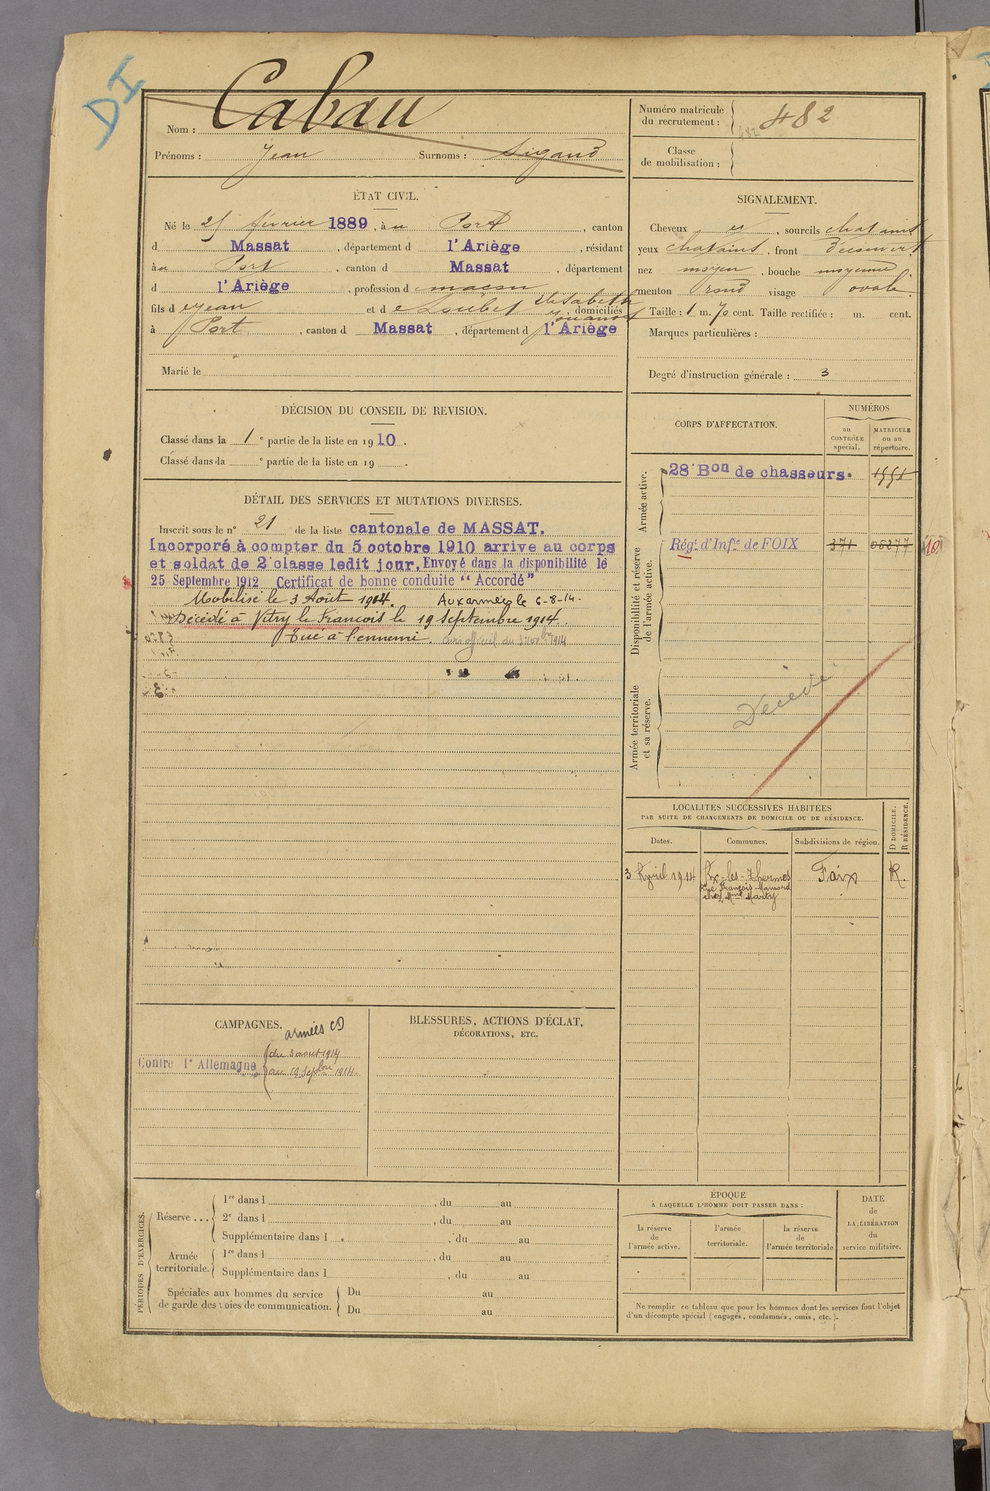 DI
Nom : Cabau
Prénoms : Jean Surnoms : Sigaud
Numéro matricule
du recrutement : 482
Classe
de mobilisation :
ÉTAT CIVIL.
Né le 25 février 1889, à u Port, canton
d Massat, département d l'Ariège, résidant
à u Port, canton d Massat, département
d l'Ariège, profession d maçon
fils d e Jean et d e Loubet Elisabeth, domiciliés
à Port, canton d Massat, département d l'Ariège
Marié le
SIGNALEMENT.
Cheveux et, sourcils chatains
yeux chatains, front découvert
nez moyen, bouche moyenne
menton rond visage ovale.
Taille : 1 m. 70 cent. Taille rectifiée : m. cent.
Marques particulières :
Degré d'instruction générale : 3
DÉCISION DU CONSEIL DE REVISION.
Classé dans la 1e partie de la liste en 1910.
Classé dans la e partie de la liste en 19 .
CORPS D'AFFECTATION.
NUMÉROS
au
CONTRÔLE
spécial.
MATRICULE
ou au
répertoire.
Armée active.
28e Bon de chasseurs.
Disponibilité et réserve
de l'armée active.
Régt d'Infie de FOIX 371
Armée territoriale
et sa réserve.
Décédé
DÉTAIL DES SERVICES ET MUTATIONS DIVERSES.
Inscrit sous le n° 21 de la liste cantonale de MASSAT.
Incorporé à compter du 5 octobre 1910 arrive au corps
et soldat de 2e classe ledit jour. Envoyé dans la disponibilité le
25 Septembre 1912 Certificat de bonne conduite "Accordé"
Mobilisé le 3 Août 1914. Aux armées le 6-8-14.
Décédé à Vitry le François le 19 Septembre 1914.
Tué à l'ennemi. avis officiel du
LOCALITÉS SUCCESSIVES HABITÉES
PAR SUITE DE CHANGEMENTS DE DOMICILE OU DE RÉSIDENCE.
Dates. Communes. Subdivisions de région. D DOMICILE. R RÉSIDENCE.
3 Avril 1914 Ax-les-Thermes Foix R.
chez Mme Marty
CAMPAGNES.
armées
Contre l'Allemagne
du 3 août 1914
au 19 Sepbre 1914.
BLESSURES, ACTIONS D'ÉCLAT,
DÉCORATIONS, ETC.
PÉRIODES D'EXERCICES.
Réserve ...
1re dans l , du au
2e dans l , du au
Supplémentaire dans l , du au
Armée
territoriale.
1re dans l , du au
Supplémentaire dans l , du au
Spéciales aux hommes du service
de garde des voies de communication.
Du au
Du au
ÉPOQUE
À LAQUELLE L'HOMME DOIT PASSER DANS :
la réserve
de
l'armée active.
l'armée
territoriale.
la réserve
de
l'armée territoriale
DATE
de
LA LIBÉRATION
du
service militaire.
Ne remplir ce tableau que pour les hommes dont les services font l'objet
d'un décompte spécial (engagés, condamnés, omis, etc.).